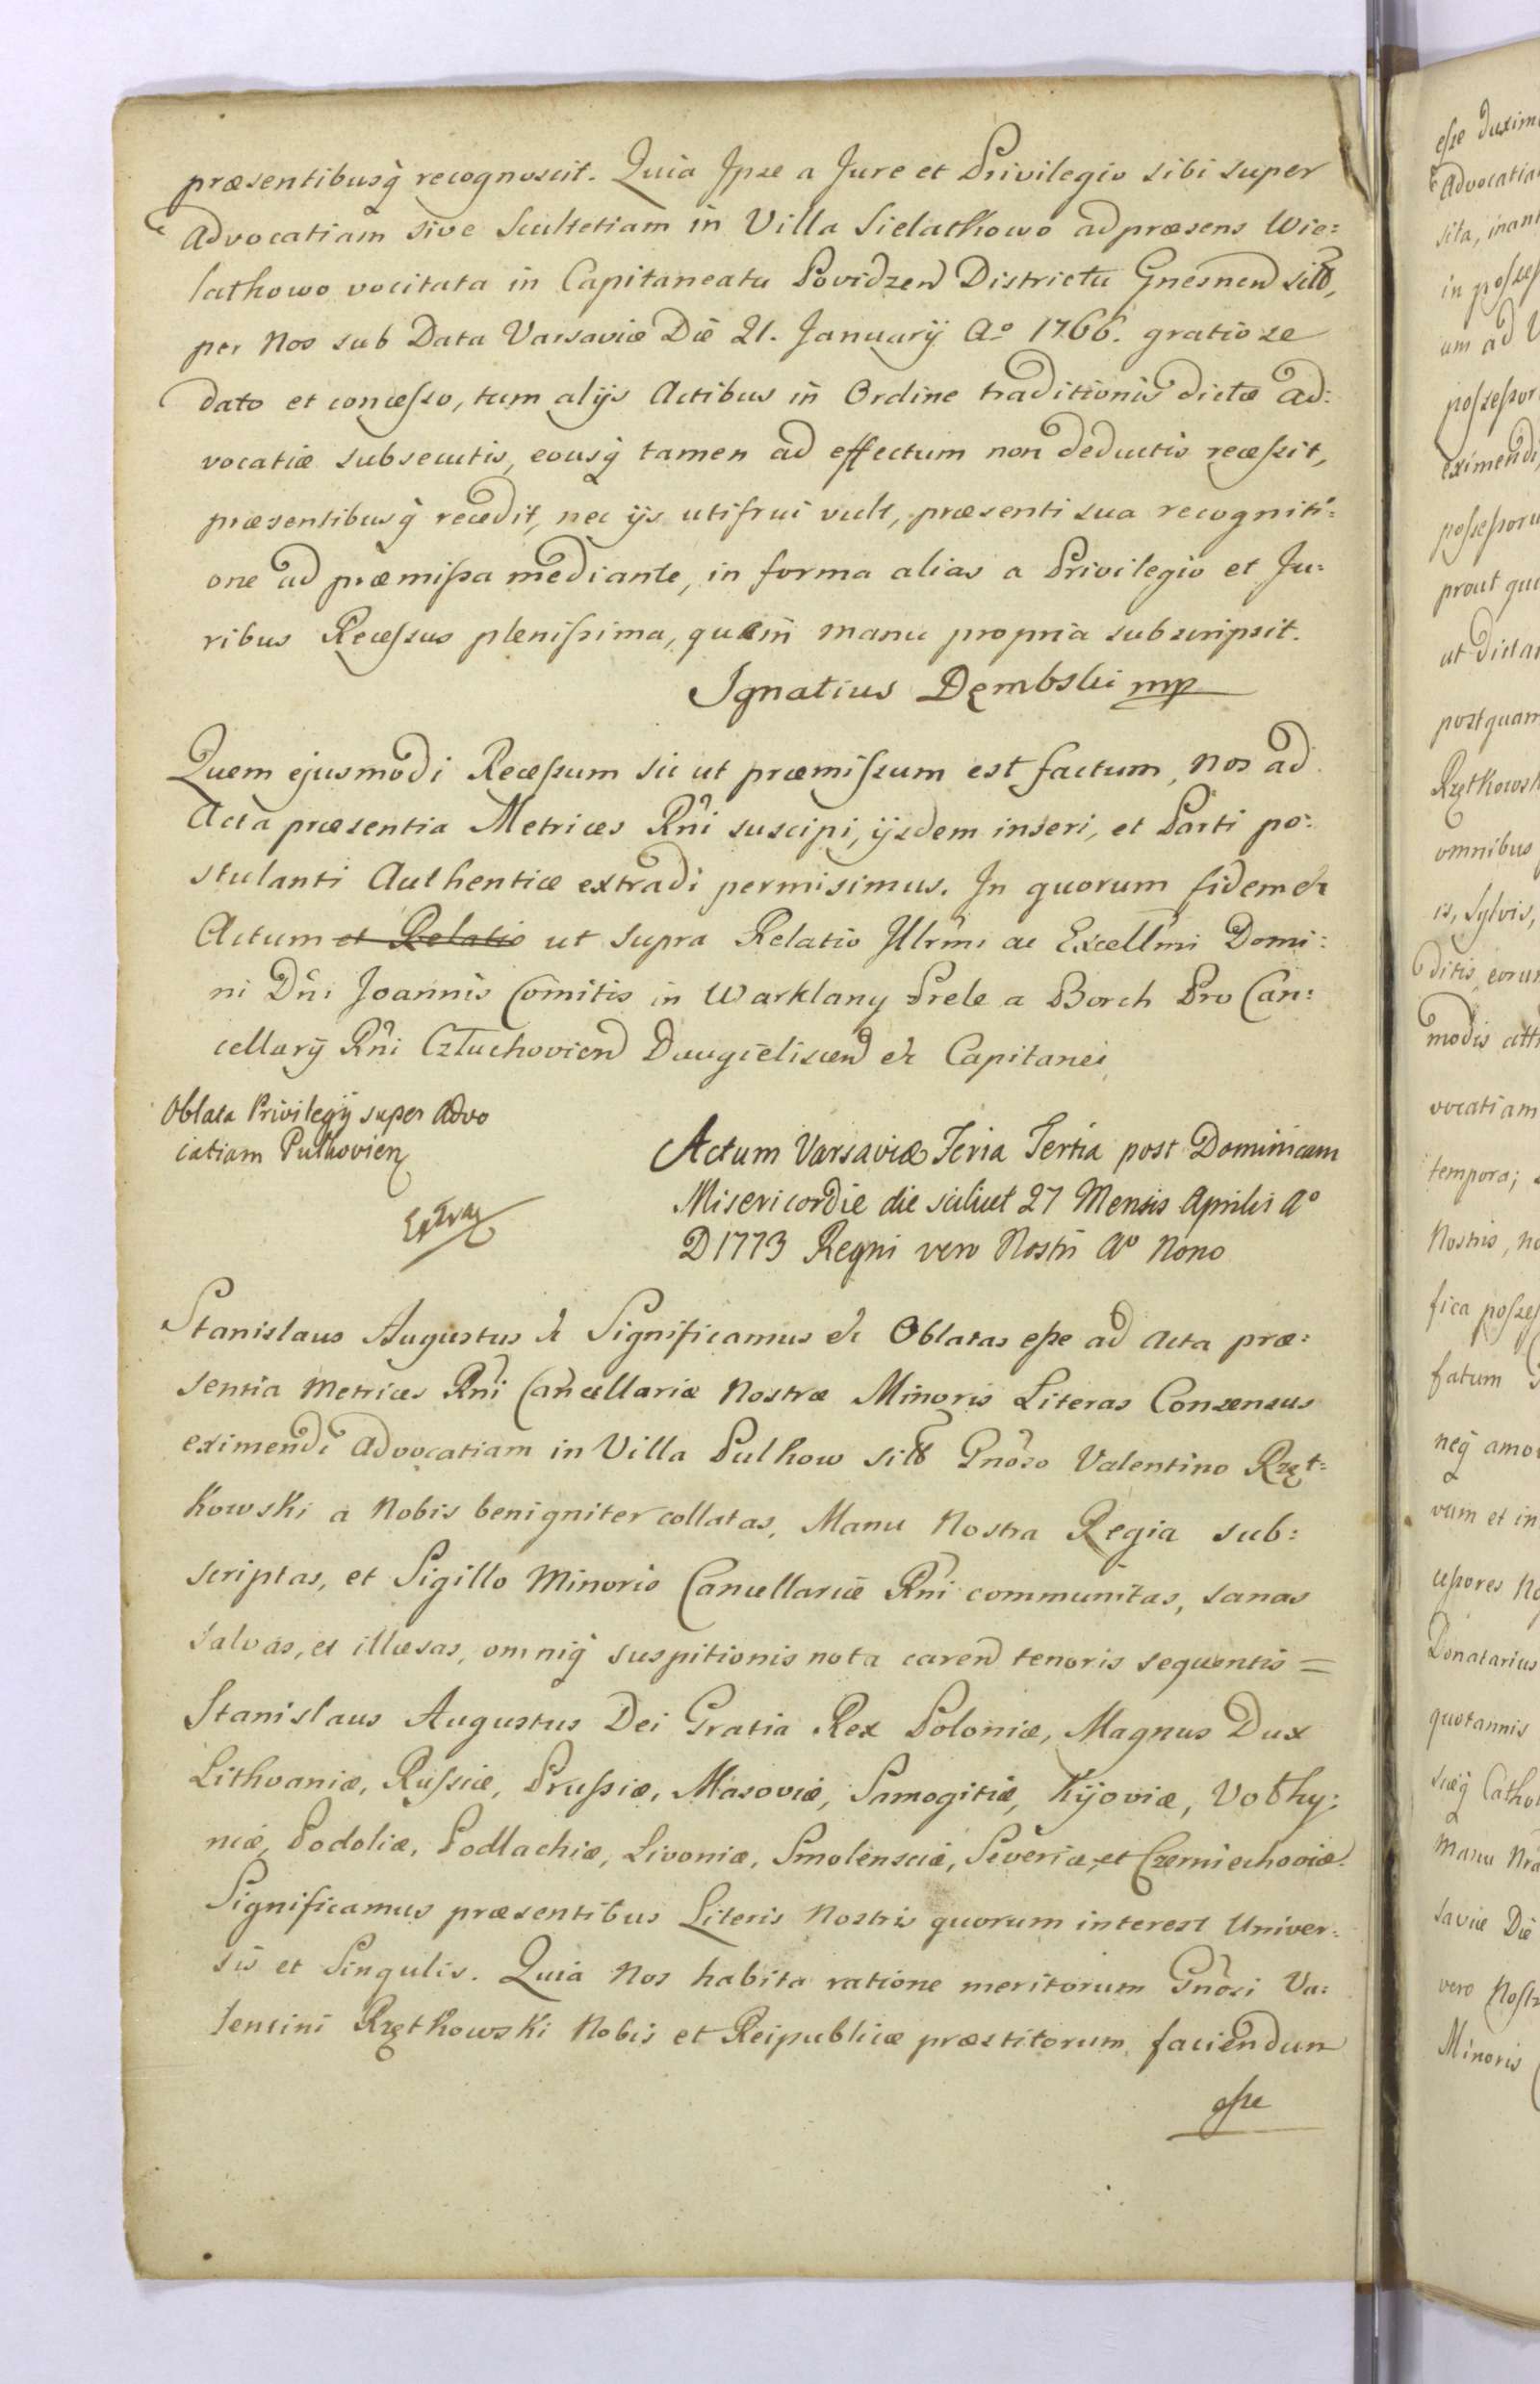 præsentibusq̃ recognoscit. Quia Ipse a Jure et Privilegio sibi super
Advocatiam sive Scultetiam in Villa Sielathowo ad præsens Wie:
lathowo vocitata in Capitaneatu Povidzen Districtu Gnesnen sita,
per Nos sub Data Varsaviæ Die 21. Januarij Ao 1766. gratiose
dato et concesso, tum alijs Actibus in Ordine traditionis dictæ Ad:
vocatiæ subsecutis, eousq̃ tamen ad effectum non deductis recessit,
præsentibusq̃ recedit, nec ijs uti frui vult, præsenti sua recogniti:
one ad præmissa mediante, in forma alias a Privilegio et Ju:
ribus Recessus plenissima, quam manu propria subscripsit.
Ignatius Dembski mp
Quem ejusmodi Recessum sic ut præmissum est factum, Nos ad
Acta præsentia Metrices Rñi suscipi, ijsdem inseri, et Parti po:
stulanti Authenticæ extradi permisimus. In quorum fidem &
Actum et Relatio ut supra Relatio Illrmi ac Excellmi Domi:
ni Dñi Joannis Comitis in Warklany Prele a Borch Pro Can:
cellarij Rñi Człuchovien Daugielisceñ & Capitanei
Oblata Privilegij super Advo
catiam Pulhovien
Extrad
Actum Varsaviæ Feria Tertia post Dominicam
Misericordie die scilicet 27 Mensis Aprilis Ao
D 1773 Regni vero Nostri Ao Nono
Stanislaus Augustus & Significamus & Oblatas esse ad Acta præ:
sentia Metrices Rñi Cancellariæ Nostræ Minoris Literas Consensus
eximendi Advocatiam in Villa Pulhow sitã Gnõso Valentino Rzęt:
kowski a Nobis benigniter collatas, Manu Nostra Regia sub:
scriptas, et Sigillo Minoris Cancellariæ Rñi communitas, sanas
salvas, et illæsas, omniq̃ suspitionis nota caren tenoris sequentis =
Stanislaus Augustus Dei Gratia Rex Poloniæ, Magnus Dux
Lithvaniæ, Russiæ, Prussiæ, Masoviæ, Samogitiæ, Kijoviæ, Volhy:
niæ, Podoliæ, Podlachiæ, Livoniæ, Smolensciæ, Severiæ, et Czerniechoviæ.
Significamus præsentibus Literis Nostris quorum interest Univer:
sis et Singulis. Quia Nos habita ratione meritorum Gnõsi Va:
lentini Rzęthowski Nobis et Reipublicæ præstitorum, faciendum
esse
esse duxim
Advocatia
sita, inant
in posses
um ad V
possessor
eximendi
possessoru
prout qu
ut dicta
postquam
Rzęthowsk
omnibus
is, sylvis,
ditis, eoru
modis att
vocatiam
tempora;
Nostris, no
fica posses
fatum
neq̃ amo
vum et in
cessores No
Donatarius
quotannis
suæq̃ Cathol
Manu Nra
saviæ Die
vero Nostr
Minoris